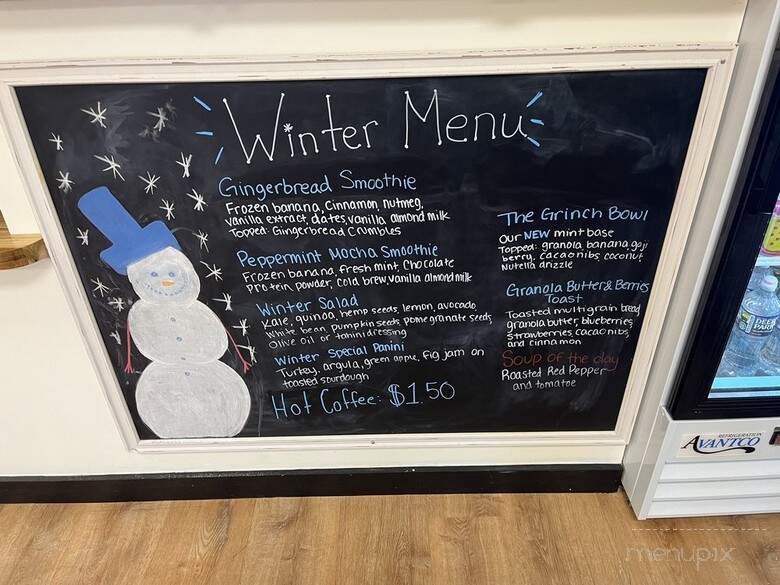 Winter Menu
Gingerbread Smoothie
Frozen banana, Cinnamon, nutmeg,
vanilla extract, dates, vanilla almond milk
Topped: Gingerbread Crumbles
Peppermint Mocha Smoothie
Frozen banana, fresh mint, Chocolate
Protein powder, cold brew, vanilla almond milk
Winter Salad
Kale, quinoa, hemp seeds, lemon, avocado
White bean, pumpkin seeds, pomegranate seeds,
Olive oil or tahini dressing
Winter Special Panini
Turkey, argula, green apple, fig jam on
toasted sourdough
Hot Coffee: $1.50
The Grinch Bowl
Our NEW mint base
Topped: granola, banana, goji
berry, cacao nibs, coconut,
Nutella drizzle
Granola Butter & Berries
Toast
Toasted multigrain bread,
granola butter, blueberries,
strawberries, cacao nibs,
and cinnamon
Soup of the day
Roasted Red Pepper
and tomatoe
DEER
PARK
REFRIGERATION
AVANTCO
menupix